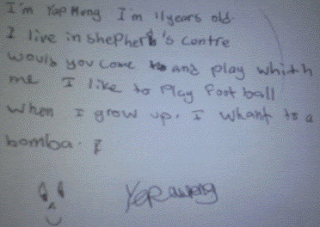 I'm Yap Meng I'm 11 years old.
I live in shepherb's centre
would you come and play whith
me I like to Play foot ball
when I grow up. I whant to a
bomba.
Yap meng